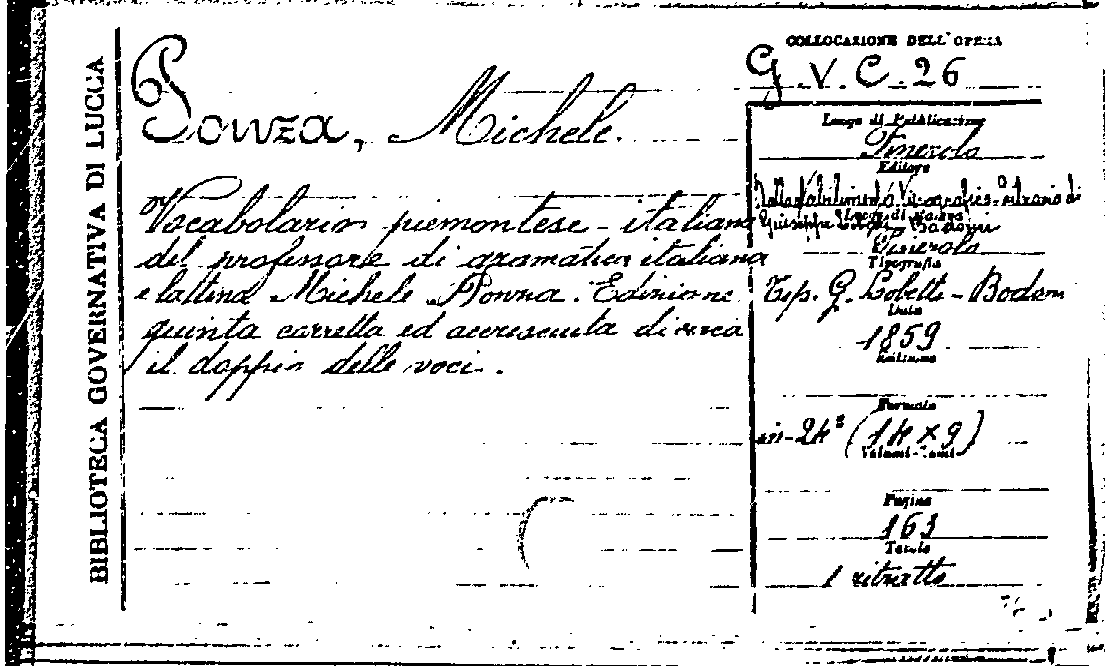 BIBLIOTECA GOVERNATIVA DI LUCCA
Ponza, Michele.
Vocabolario piemontese-italiano
del professore di gramatica italiana
e lattina Michele Ponza. Edizione
quinta corretta ed accresciuta di circa
il doppio delle voci.
COLLOCAZIONE DELL'OPERA
G.V.C.26
Luogo di Pubblicazione
Pinerolo
Editore
Dallo Stabilimento Tipografico-Librario di
Giuseppe Bodoni
Luogo di Stampa
Pinerolo
Tipografia
Tip. G. Lobetti-Bodoni
Data
1859
Edizione
Formato
in-24° (14x9)
Volumi-Tomi
Pagine
163
Tavole
1 ritratto